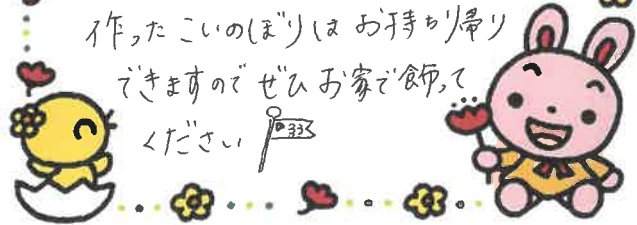 作ったこいのぼりはお持ち帰り
できますのでぜひお家で飾って
ください